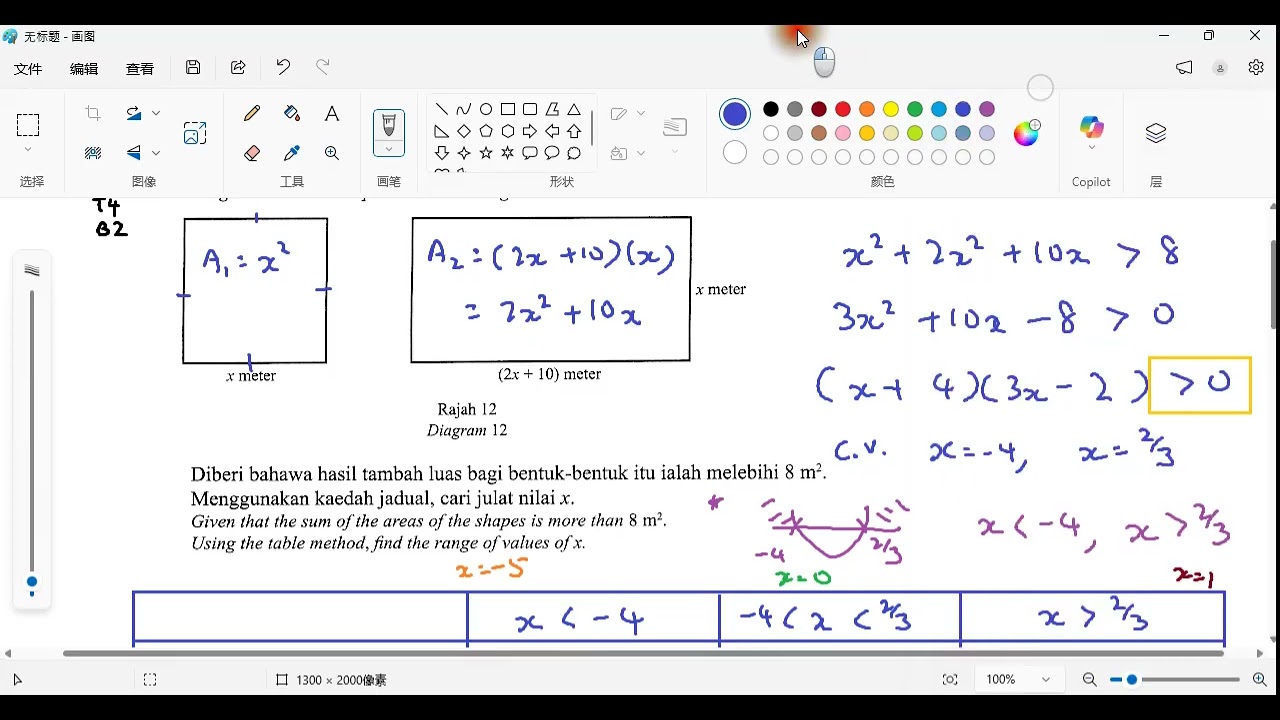 无标题 - 画图
文件 编辑 查看
选择 图像 工具 画笔 形状 颜色 Copilot 层
T4
B2
A₁ = x²
A₂ = (2x + 10)(x)
= 2x² + 10x
x meter
x meter
(2x + 10) meter
Rajah 12
Diagram 12
x² + 2x² + 10x > 8
3x² + 10x - 8 > 0
(x + 4)(3x - 2) > 0
C.V. x = -4, x = 2/3
Diberi bahawa hasil tambah luas bagi bentuk-bentuk itu ialah melebihi 8 m².
Menggunakan kaedah jadual, cari julat nilai x.
Given that the sum of the areas of the shapes is more than 8 m².
Using the table method, find the range of values of x.
*
-4 2/3
x < -4, x > 2/3
x = -5 x = 0 x = 1
x < -4 -4 < x < 2/3 x > 2/3
1300 × 2000像素 100%